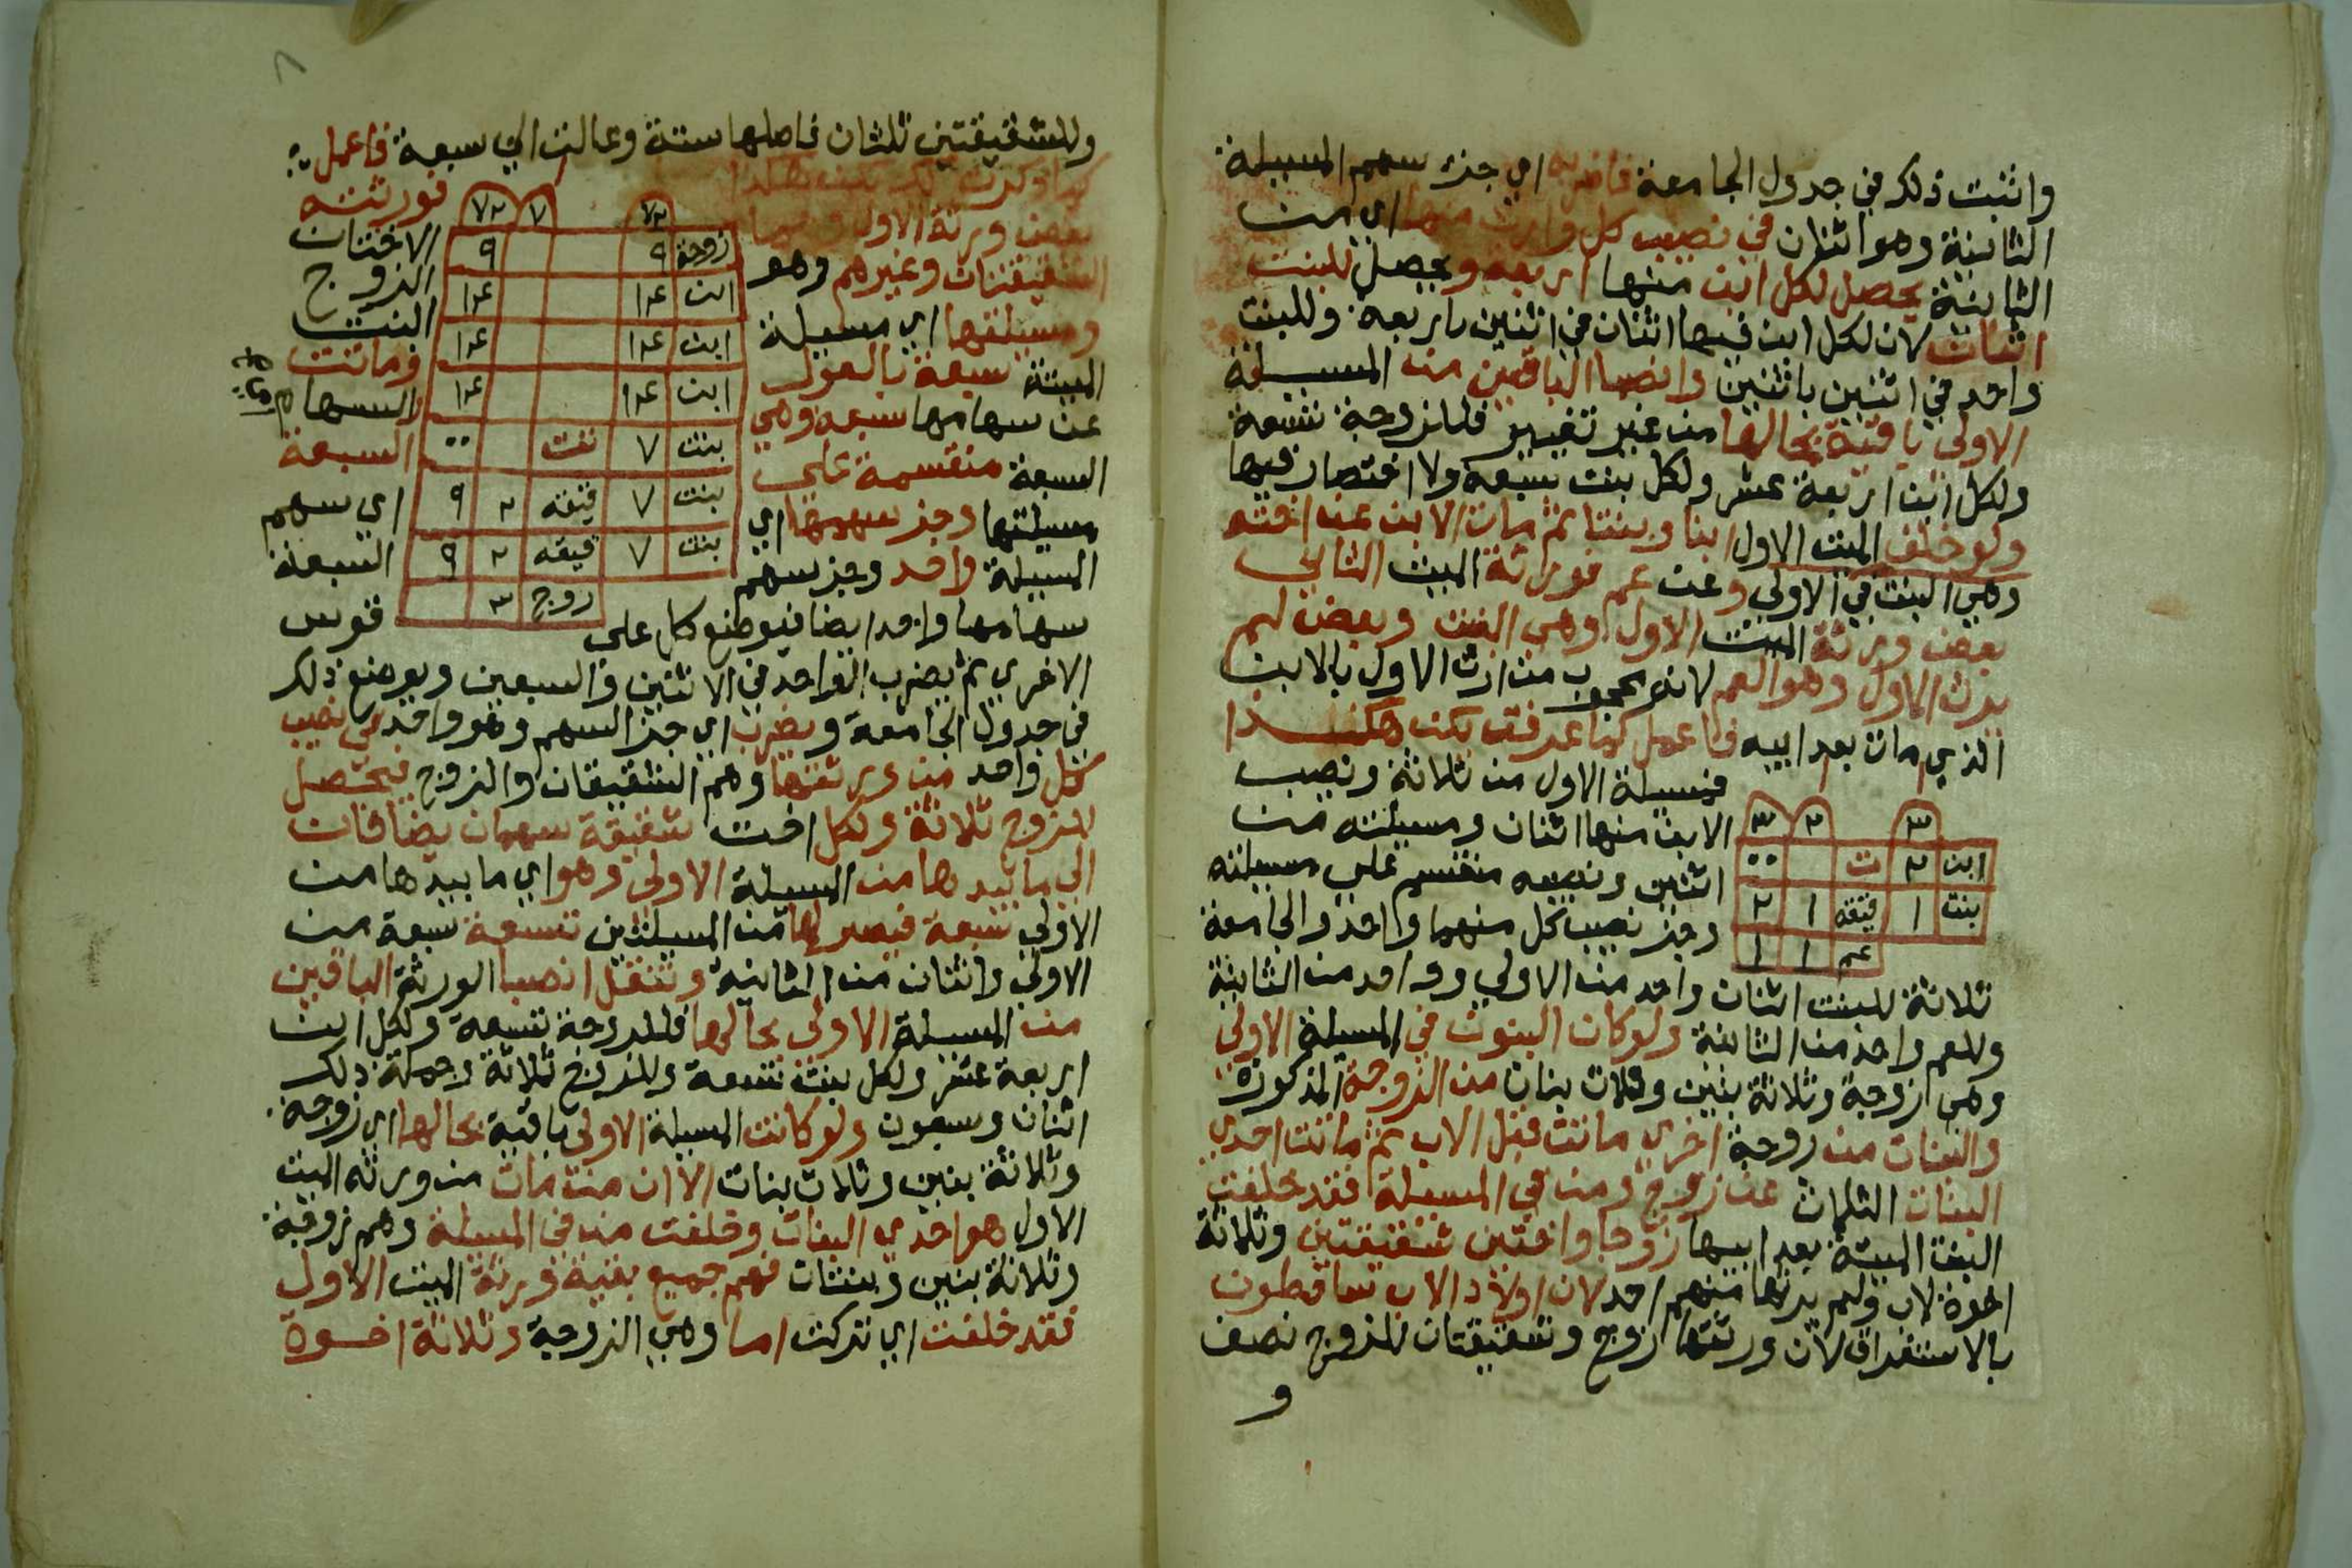 واثبت ذلك في جدول الجامعة فاضربه اي جزء سهم المسيلة
الثانية وهو اثنان في نصيب كل وارث منها اي من
الثانية يحصل لكل ابن منها اربعة ويحصل للبنت
اثنان لان لكل ابن فيها اثنان في اثنين باربعة وللبنت
واحد في اثنين باثنين وانصبا الباقين من المسيلة
الاولي باقية بحالها من غير تغيير فللزوجة تسعة
ولكل ابن اربعة عشر ولكل بنت سبعة ولا اختصار فيها
ولو خلف الميت الاول ابنا وبنتا ثم مات الابن عن اخته
وهي البنت في الاولي وعن عم فورثة الميت الثاني
بعض ورثة الميت الاول وهي البنت وبعض لم
يرث الاول وهو العم لانه محجوب من ارث الاول بالابن
الذي مات بعد ابيه فاعمل كما عرفت يكن هكذا
فمسيلة الاول من ثلاثة ونصيب
الابن منها اثنان ومسيلته من
اثنين ونصيبه منقسم علي مسيلته
وجزء نصيب كل منهما واحد والجامعة
٣ ٢ ٣
ابن ٢ ت ٠٠
بنت ١ قيقة ١ ٢
عم ١ ١
ثلاثة للبنت اثنان واحد من الاولي وواحد من الثانية
وللعم واحد من الثانية ولو كان البنون في المسيلة الاولي
وهي زوجة وثلاثة بنين وثلاث بنات من الزوجة المذكورة
والبنات من زوجة اخري ماتت قبل الاب ثم ماتت احدي
البنات الثلاث عن زوج ومن في المسيلة فقد خلفت
البنت الميتة بعد ابيها زوجا واختين شقيقتين وثلاثة
اخوة لاب ولم يرثها منهم احد لان اولاد الاب ساقطون
بالاستغراق لان ورثتها زوج وشقيقتان للزوج نصف
و
٨
وللشقيقتين ثلثان فاصلها ستة وعالت الي سبعة فاعمل
كما ذكرت لك يكن هكذا فورثته
بعض ورثة الاول وهما الاختان
الشقيقتان وغيرهم وهو الزوج
ومسيلتها اي مسيلة البنت
الميتة سبعة بالعول وماتت
عن سهامها سبعة وهي والسهام
السبعة منقسمة علي السبعة
مسيلتها وجزء سهمها اي اي سهم
المسيلة واحد وجزء سهم السبعة
٧٢ ٧ ٧٢
زوجة ٩ ٩
ابن ١٤ ١٤
ابن ١٤ ١٤
ابن ١٤ ١٤
بنت ٧ تفت ٠٠
بنت ٧ قيقة ٢ ٩
بنت ٧ قيقه ٢ ٩
زوج ٣
سهامها واحد ايضا فيوضع كل على قوس
الاخري ثم يضرب الواحد في الاثنين والسبعين ويوضع ذلك
في جدول الجامعة ويضرب اي جزء السهم وهو واحد في نصيب
كل واحد من ورثتها وهم الشقيقان والزوج فيحصل
للزوج ثلاثة ولكل اخت شقيقة سهمان يضافان
الي ما بيدها من المسيلة الاولي وهو اي ما بيدها من
الاولي سبعة فيصير لها من المسيلتين تسعة سبعة من
الاولي واثنان من الثانية وتنقل انصبا الورثة الباقين
من المسيلة الاولي بحالها فللزوجة تسعة ولكل ابن
اربعة عشر ولكل بنت تسعة وللزوج ثلاثة وجملة ذلك
اثنان وسبعون ولو كانت المسيلة الاولي باقية بحالها اي زوجة
وثلاثة بنين وثلاث بنات الا ان من مات من ورثه الميت
الاول هو احدي البنات وخلفت من في المسيلة وهم زوجة
وثلاثة بنين وبنتان فهم جميع بقية ورثة الميت الاول
فقد خلفت اي تركت اما وهي الزوجة وثلاثة اخوة